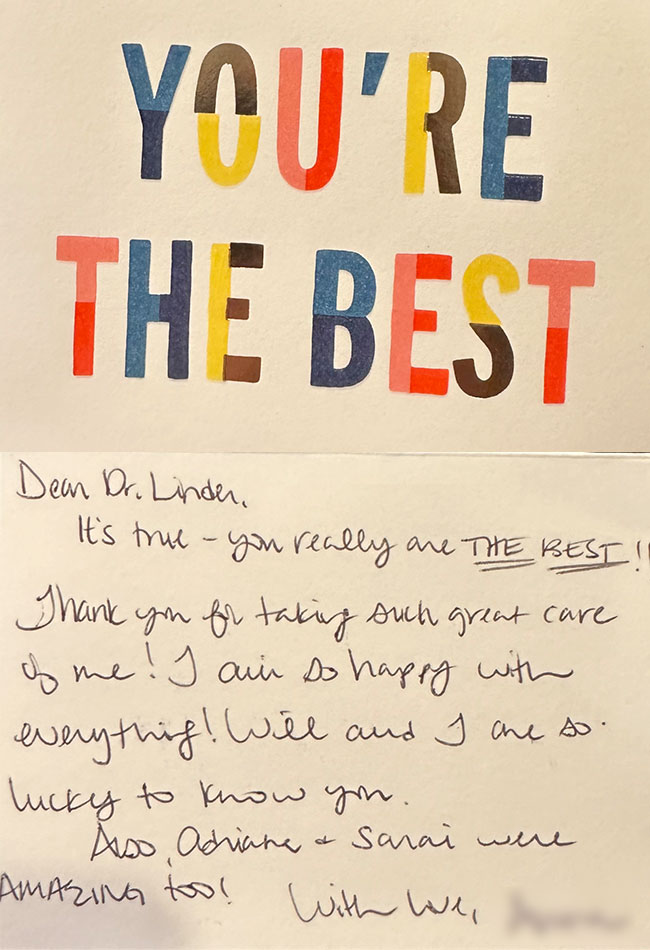 YOU'RE
THE BEST
Dear Dr. Linder,
It's true - you really are THE BEST!!
Thank you for taking such great care
of me! I am so happy with
everything! Will and I are so
lucky to know you.
Also, Adriane + Sarai were
AMAZING too!
With love,